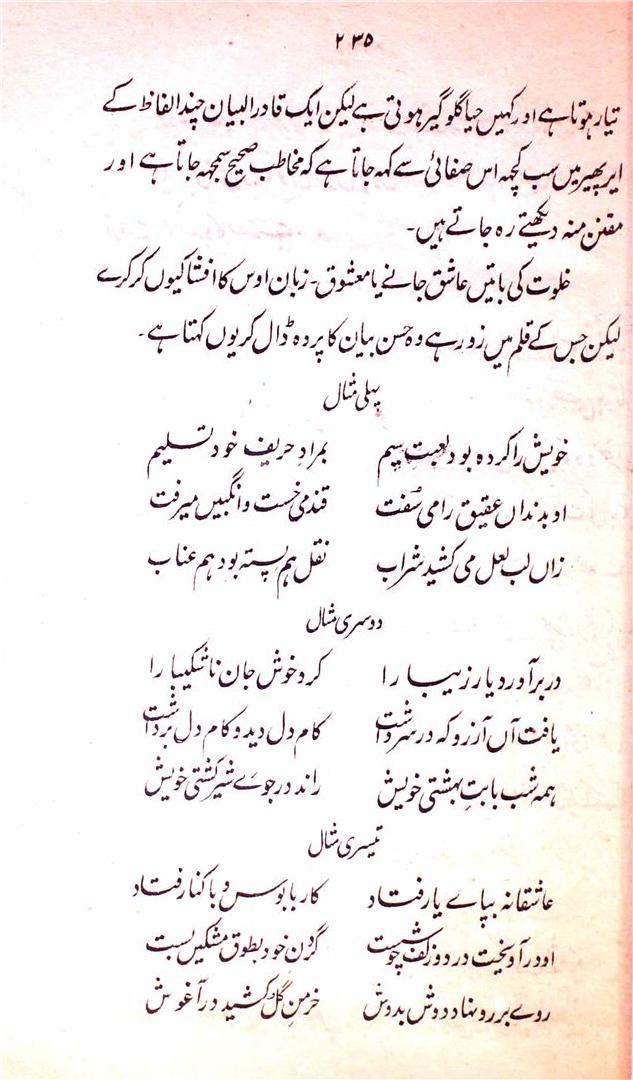 ۲۳۵
تیار ہوتا ہے اور کہیں حیا گلوگیر ہوتی ہے لیکن ایک قادرالبیان چند الفاظ کے
ایر پھیر میں سب کچھ اس صفائی سے کہہ جاتا ہے کہ مخاطب صحیح سمجھ جاتا ہے اور
مقنن منہ دیکھتے رہ جاتے ہیں۔
خلوت کی باتیں عاشق جانے یا معشوق۔ زبان اوس کا افشا کیوں کر کرے
لیکن جس کے قلم میں زور ہے وہ حسن بیان کا پردہ ڈال کر یوں کہتا ہے۔
پہلی مثال
خویش را کردہ بود لعبت سیم بمرادِ حریف خود تسلیم
او بدنداں عقیق را می سُفت قند می خست و انگبیں میرفت
زاں لب لعل می کشید شراب نقل ہم پستہ بود ہم عناب
دوسری مثال
در بر آورد یار زیبا را کرد خوش جان ناشکیبا را
یافت آں آرزو کہ در سر داشت کام دل دید و کام دل برداشت
ہمہ شب بابتِ بہشتی خویش راند در جوے شیر کشتی خویش
تیسری مثال
عاشقانہ بپاے یار فتاد کار با بوس و با کنار فتاد
او در آویخت در دو زلف چو شست گردن خود بطوق مشکیں بست
روے بر رو نہاد دوش بدوش خرمنِ گل کشید در آغوش